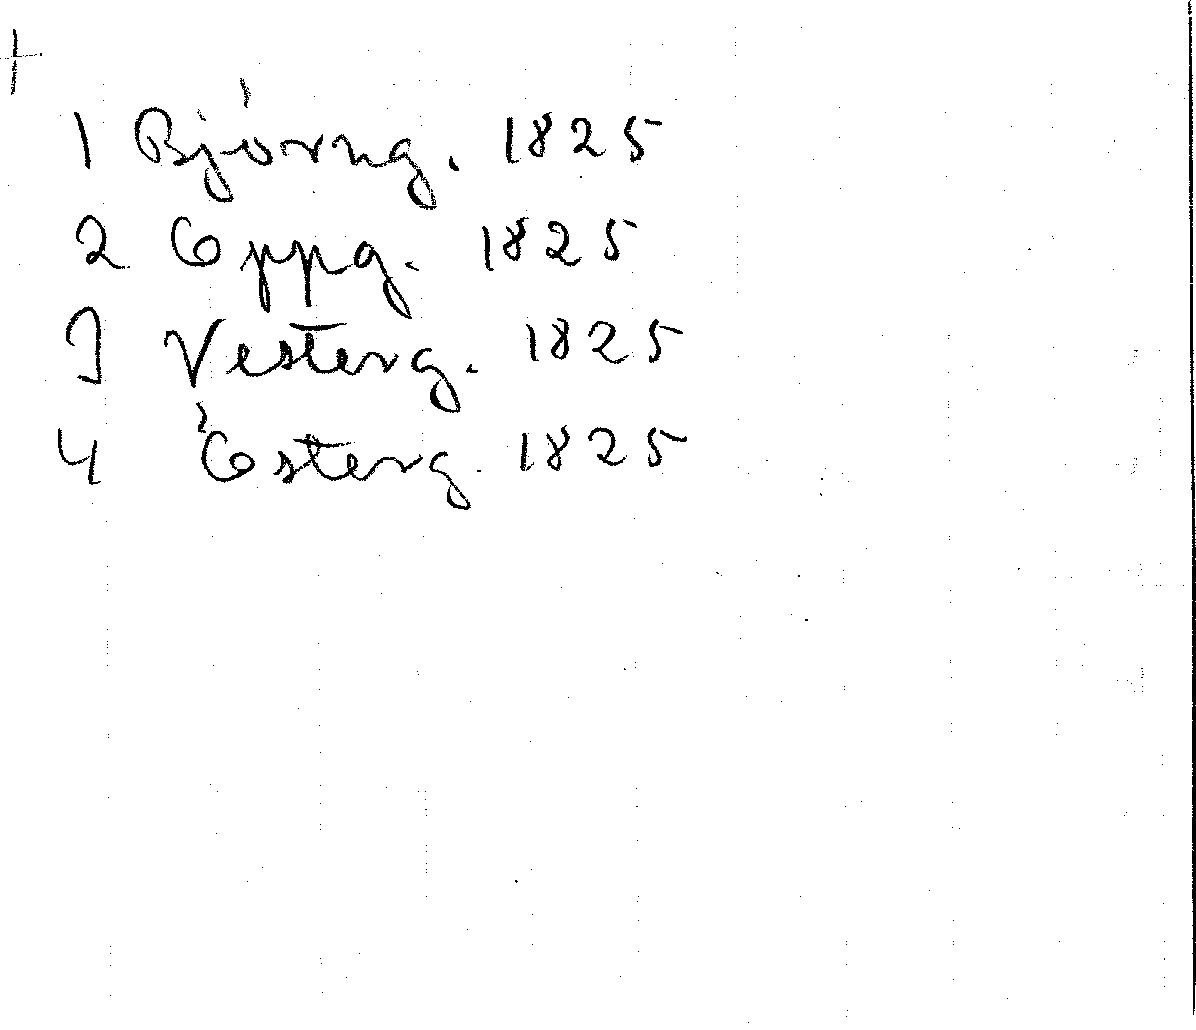 +
1 Björng. 1825
2 Oppg. 1825
3 Vesterg. 1825
4 Österg. 1825